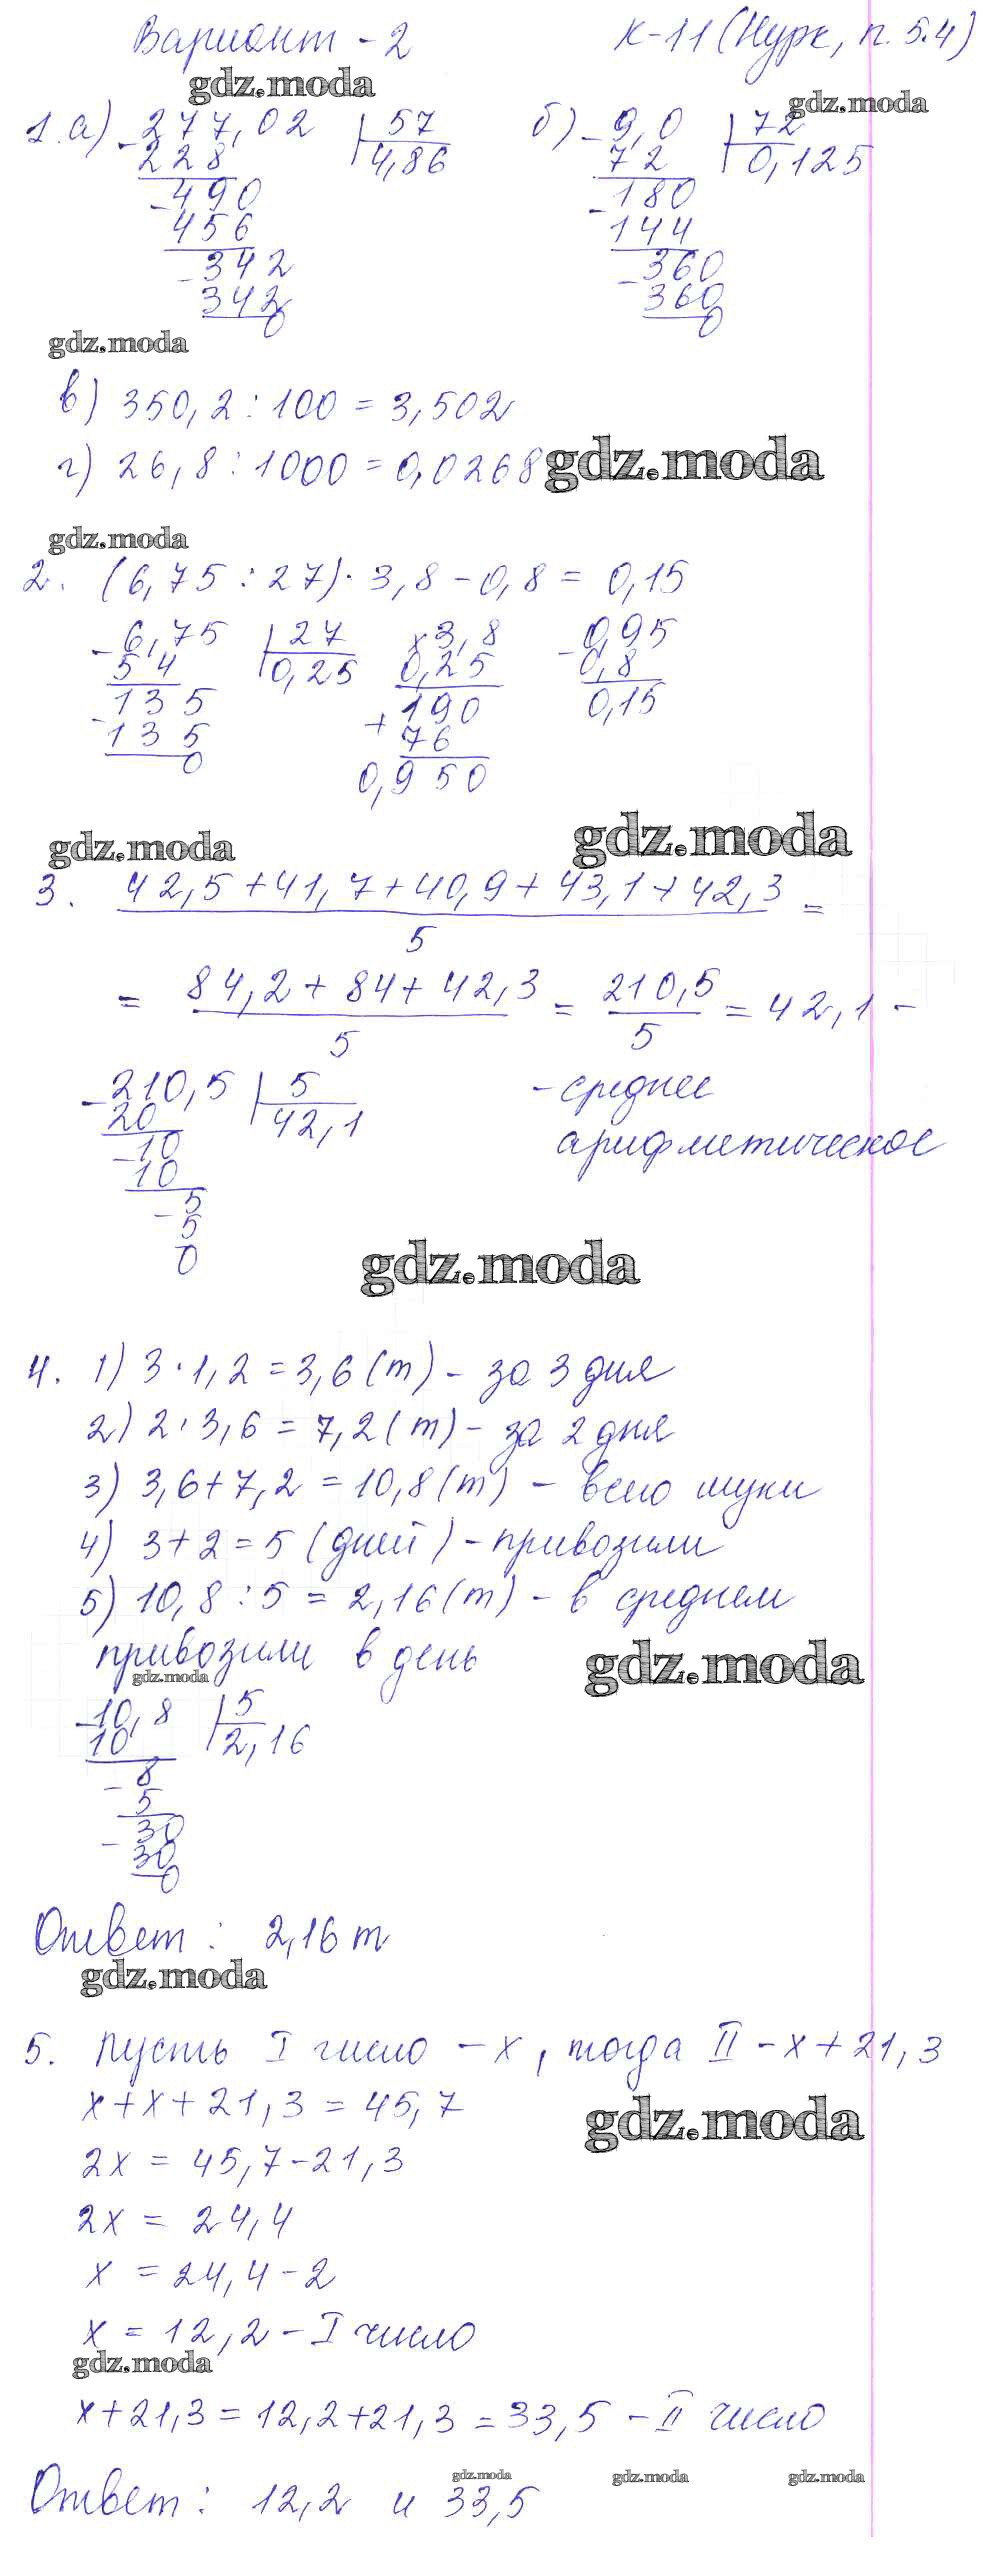 Вариант - 2 К-11 (Нурк, п. 5.4)
gdz.moda
gdz.moda
1. а) - 277,02 | 57 б) - 9,0 | 72
228 4,86 72 0,125
- 490 - 180
456 144
- 342 - 360
342 360
0 0
gdz.moda
в) 350,2 : 100 = 3,502
г) 26,8 : 1000 = 0,0268
gdz.moda
gdz.moda
2. (6,75 : 27) · 3,8 - 0,8 = 0,15
- 6,75 | 27 x 3,8 - 0,95
54 0,25 0,25 0,8
- 135 + 190 0,15
135 76
0 0,950
gdz.moda
gdz.moda
3. 42,5 + 41,7 + 40,9 + 43,1 + 42,3 =
5
= 84,2 + 84 + 42,3 = 210,5 = 42,1 -
5 5
- 210,5 | 5 - среднее
20 42,1
- 10 арифметическое
10
- 5
5
0
gdz.moda
4. 1) 3 · 1,2 = 3,6 (т) - за 3 дня
2) 2 · 3,6 = 7,2 (т) - за 2 дня
3) 3,6 + 7,2 = 10,8 (т) - всего муки
4) 3 + 2 = 5 (дней) - привозили
5) 10,8 : 5 = 2,16 (т) - в среднем
привозили в день
gdz.moda
gdz.moda
- 10,8 | 5
10 2,16
- 8
5
- 30
30
0
Ответ: 2,16 т
gdz.moda
5. Пусть I число - x, тогда II - x + 21,3
x + x + 21,3 = 45,7
gdz.moda
2x = 45,7 - 21,3
2x = 24,4
x = 24,4 - 2
x = 12,2 - I число
gdz.moda
x + 21,3 = 12,2 + 21,3 = 33,5 - II число
gdz.moda gdz.moda gdz.moda
Ответ: 12,2 и 33,5